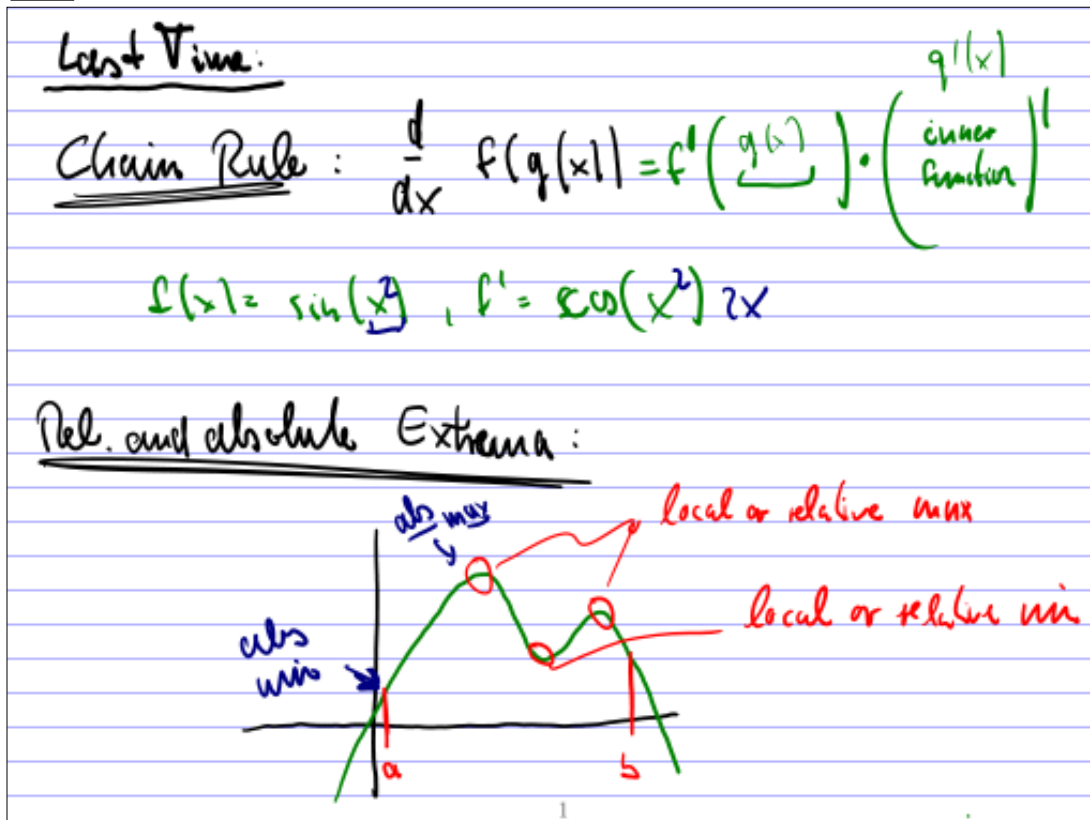 Last Time:
g'(x)
Chain Rule : d/dx f(g(x)) = f'(g(x)) · (inner function)'
f(x) = sin(x²) , f' = cos(x²) 2x
Rel. and absolute Extrema :
abs max
local or relative max
local or relative min
abs min
a
b
1